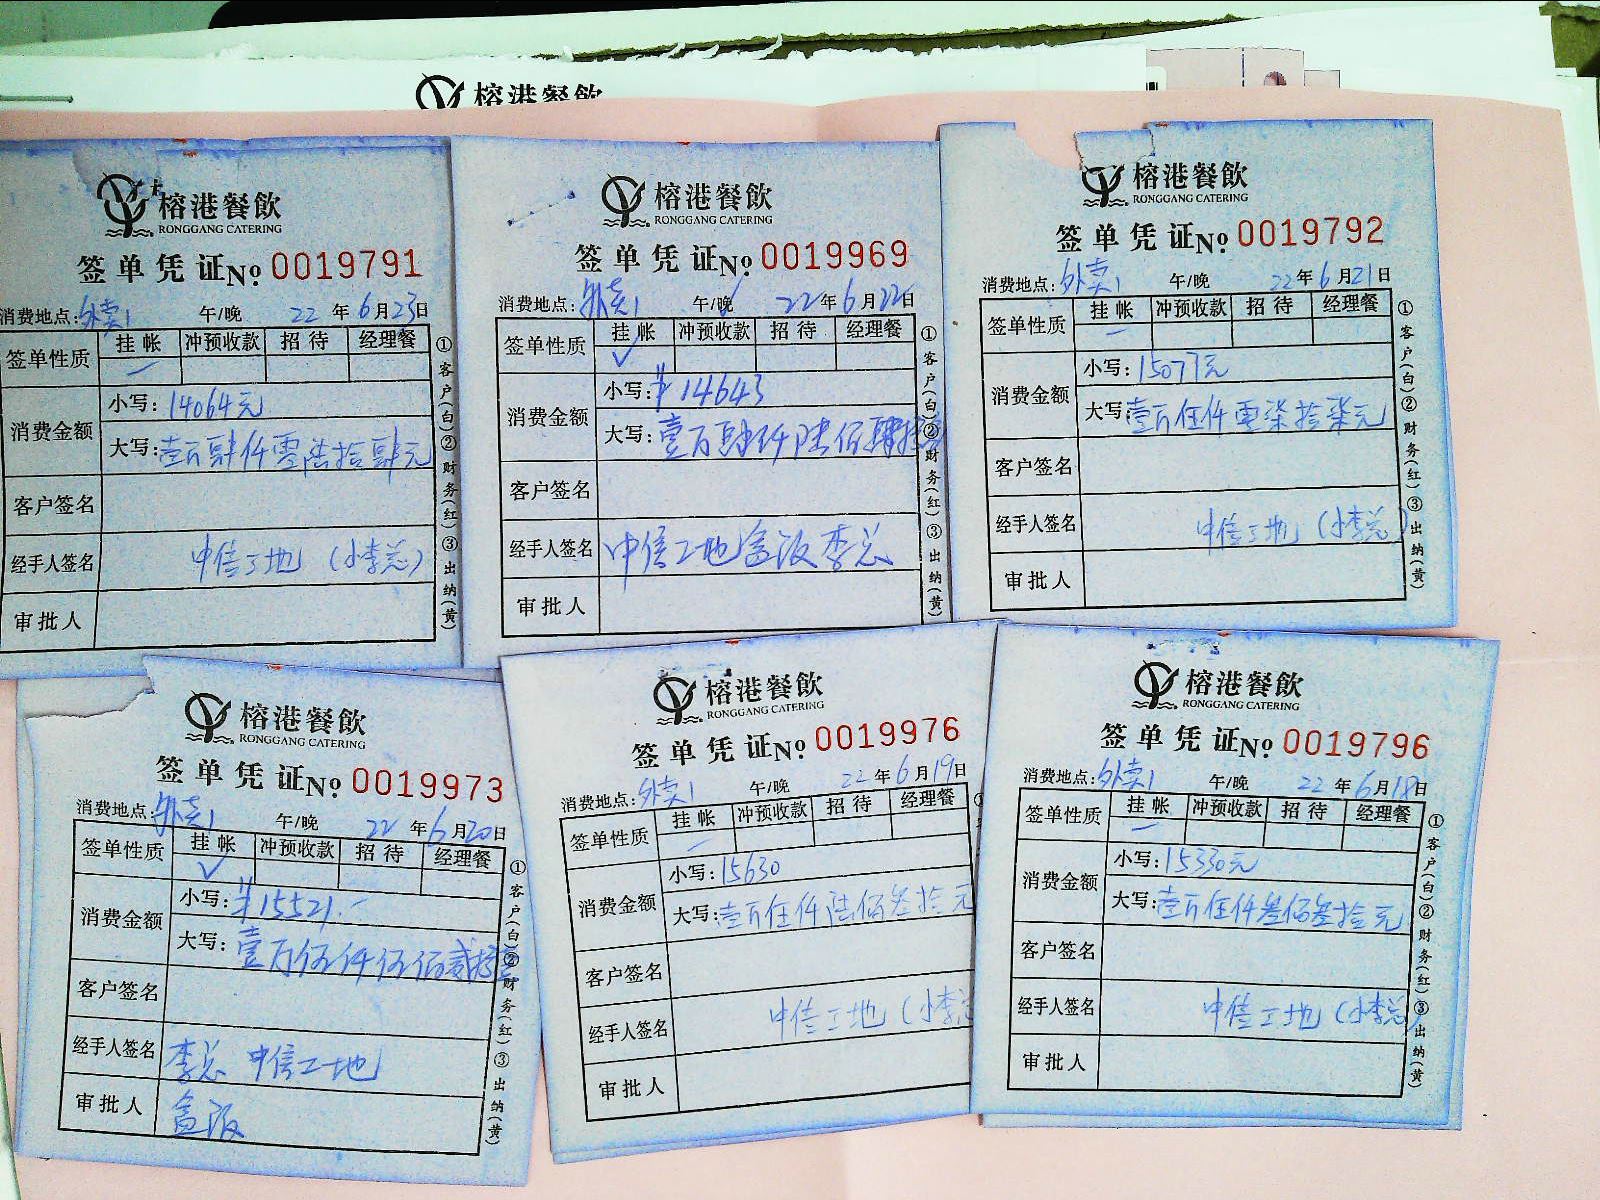 榕港餐飲
榕港餐飲
RONGGANG CATERING
签单凭证№ 0019791
消费地点:外卖1 午/晚 22年6月23日
签单性质 挂帐 冲预收款 招待 经理餐
消费金额 小写:14064元
大写:壹万肆仟零陆拾肆元
客户签名
经手人签名 中信工地(小李总)
审批人
①客户(白)②财务(红)③出纳(黄)
榕港餐飲
RONGGANG CATERING
签单凭证№ 0019969
消费地点:外卖1 午/晚 22年6月22日
签单性质 挂帐 冲预收款 招待 经理餐
✓
消费金额 小写:¥14643
大写:壹万肆仟陆佰肆拾
客户签名
经手人签名 中信工地盒饭李总
审批人
①客户(白)②财务(红)③出纳(黄)
榕港餐飲
RONGGANG CATERING
签单凭证№ 0019792
消费地点:外卖1 午/晚 22年6月21日
签单性质 挂帐 冲预收款 招待 经理餐
消费金额 小写:15077元
大写:壹万伍仟零柒拾柒元
客户签名
经手人签名 中信工地(小李总)
审批人
①客户(白)②财务(红)③出纳(黄)
榕港餐飲
RONGGANG CATERING
签单凭证№ 0019973
消费地点:外卖1 午/晚 22年6月20日
签单性质 挂帐 冲预收款 招待 经理餐
✓
消费金额 小写:¥15521.一
大写:壹万伍仟伍佰贰拾
客户签名
经手人签名 李总 中信工地
审批人 盒饭
①客户(白)②财务(红)③出纳(黄)
榕港餐飲
RONGGANG CATERING
签单凭证№ 0019976
消费地点:外卖1 午/晚 22年6月19日
签单性质 挂帐 冲预收款 招待 经理餐
消费金额 小写:15630
大写:壹万伍仟陆佰叁拾元
客户签名
经手人签名 中信工地(小李总
审批人
榕港餐飲
RONGGANG CATERING
签单凭证№ 0019796
消费地点:外卖1 午/晚 22年6月18日
签单性质 挂帐 冲预收款 招待 经理餐
消费金额 小写:15330元
大写:壹万伍仟叁佰叁拾元
客户签名
经手人签名 中信工地(小李总)
审批人
①客户(白)②财务(红)③出纳(黄)